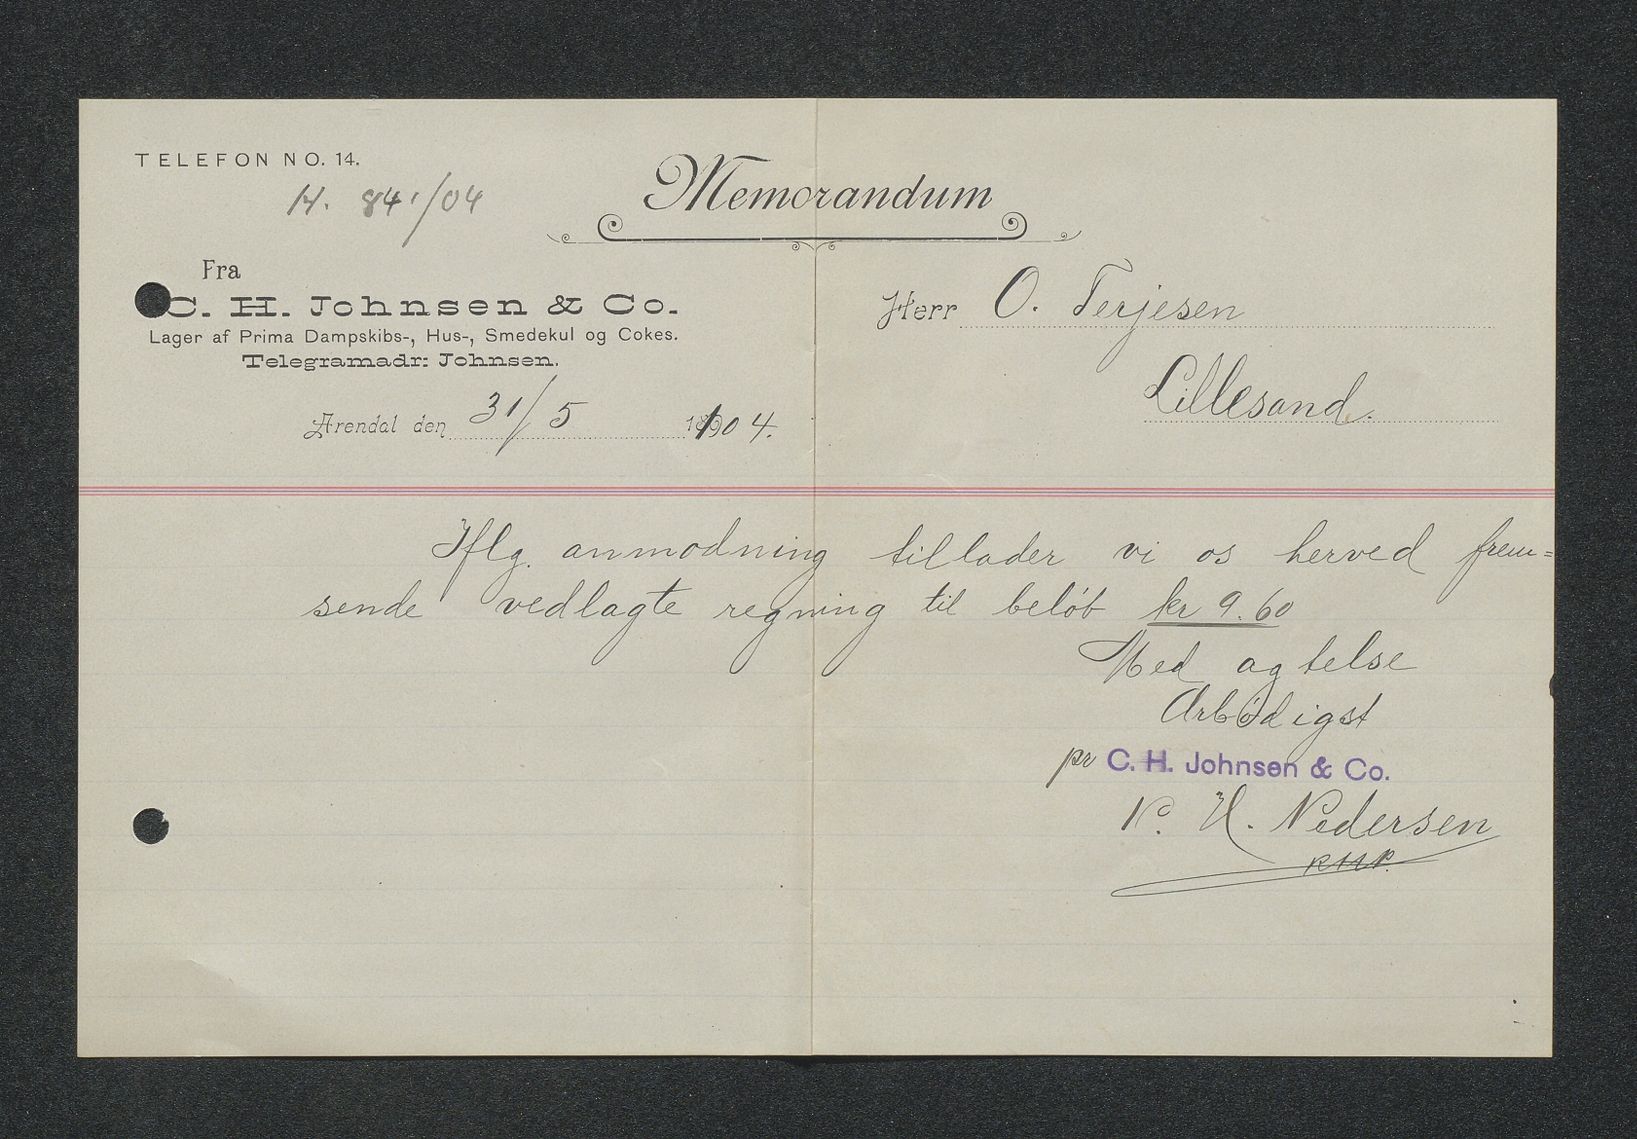 TELEFON NO. 14.
H. 841/04
Memorandum
Fra
C. H. Johnsen & Co.
Lager af Prima Dampskibs-, Hus-, Smedekul og Cokes.
Telegramadr: Johnsen.
Arendal den 31/5 1904.
Herr O. Terjesen
Lillesand.
Iflg. anmodning tillader vi os herved frem=
sende vedlagte regning til beløb kr 9.60
Med agtelse
Arbødigst
pr C. H. Johnsen & Co.
N. Pedersen